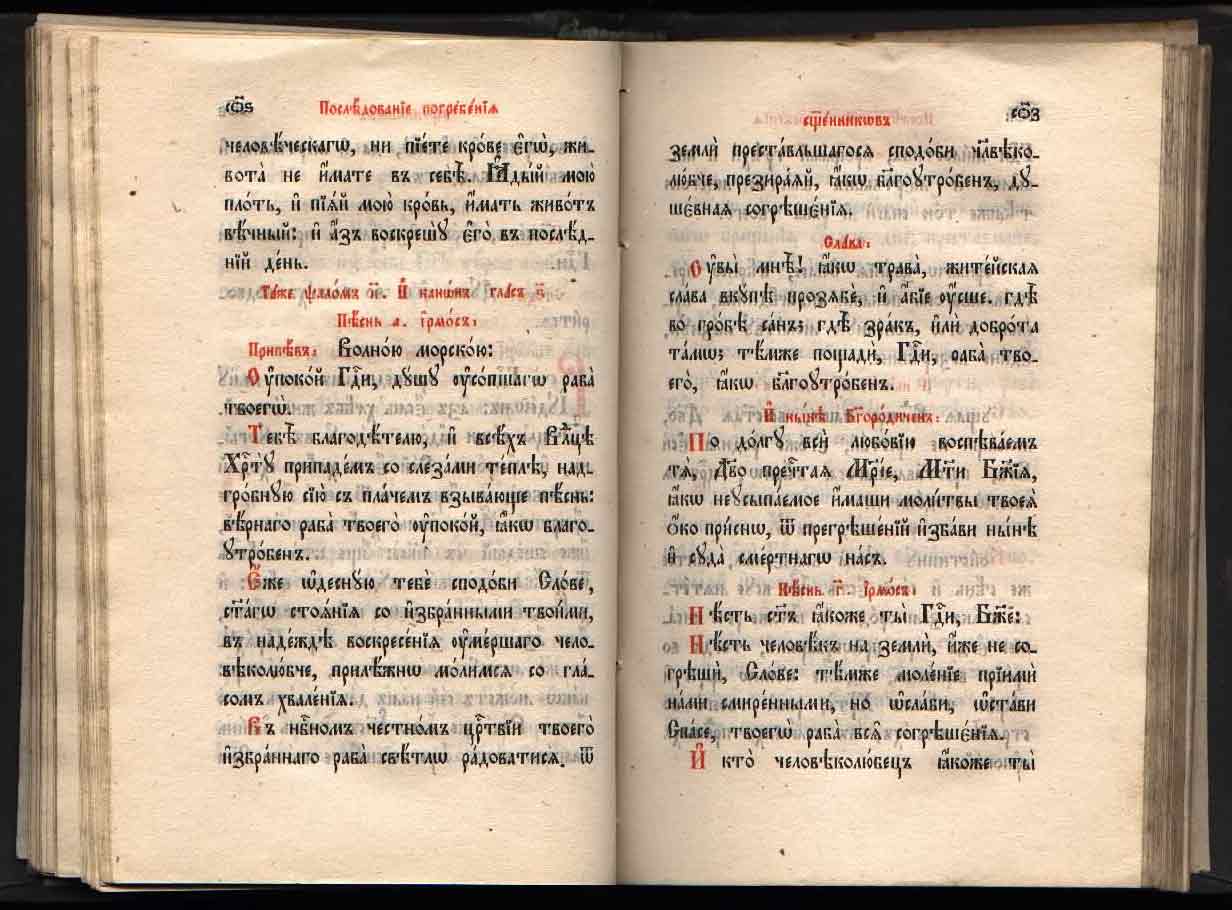 сѿѕ
Послѣ́дованїе погребе́нїѧ
человѣ́ческагѡ, ни пїе́те кро́ве є҆гѡ̀, жи-
вота̀ не и҆́мате въ себѣ̀. Ꙗ҆ды́й мою̀
пло́ть, и҆ пїѧ́й мою̀ кро́вь, и҆́мать живо́тъ
вѣ́чный: и҆ а҆́зъ воскрешꙋ̀ є҆го̀ въ послѣ́д-
нїй де́нь.
Та́же ѱало́мъ н҃. И҆ кано́нъ гла́съ ѕ҃
Пѣ́снь а. і҆рмо́съ:
Припѣ́въ: Волно́ю морско́ю:
Оу҆поко́й гдⷭ҇и, дꙋ́шꙋ оу҆со́пшагѡ раба̀
твоегѡ̀.
Тебѣ̀ благодѣ́телю, и҆ всѣ́хъ влⷣцѣ
Хрⷭ҇тꙋ̀ припаде́мъ со слеза́ми те́плѣ, над-
гро́бнꙋю сїю̀ съ пла́чемъ взыва́юще пѣ́снь:
вѣ́рнаго раба̀ твоего̀ оу҆поко́й, ꙗ҆́кѡ благо-
ꙋтро́бенъ.
Є҆́же ѡ҆деснꙋ́ю тебє̀ сподо́би Сло́ве,
ст҃а́гѡ стоѧ́нїѧ со и҆збра́нными твои́ми,
въ наде́ждѣ воскресе́нїѧ оу҆ме́ршаго чело-
вѣколю́бче, прилѣ́жнѡ мо́лимсѧ со гла́-
сомъ хвале́нїѧ.
Въ нбⷭ҇номъ че́стномъ црⷭ҇твїи твоего̀
и҆збра́ннаго раба̀ свѣ́тлѡ ра́доватисѧ. ѿ
сѿз
сщ҃е́нникѡвъ
землѝ преста́вльшагосѧ сподо́би чл҃вѣко-
лю́бче, презира́ѧй, ꙗ҆́кѡ бл҃гоꙋтро́бенъ, дꙋ-
ше́внаѧ согрѣше́нїѧ.
Сла́ва:
Оу҆вы̀ мнѣ̀! ꙗ҆́кѡ трава̀, жите́йскаѧ
сла́ва вкꙋ́пѣ прозѧбѐ, и҆ а҆́бїе оу҆́сше. гдѣ̀
во гро́бѣ са́нъ; гдѣ̀ зра́къ, и҆лѝ добро́та
та́мѡ; тѣ́мже пощадѝ, Гдⷭ҇и, раба̀ тво-
его̀, ꙗ҆́кѡ бл҃гоꙋтро́бенъ.
И҆ ны́нѣ Бг҃оро́диченъ:
По до́лгꙋ всѝ любо́вїю воспѣва́емъ
тѧ̀, Дв҃о пречⷭ҇таѧ Мр҃і́е, Мт҃и Бж҃їѧ,
ꙗ҆́кѡ неꙋсыпа́емое и҆́маши моли́твы твоеѧ̀
ѻ҆́ко при́снѡ, ѿ прегрѣше́нїй и҆зба́ви ны́нѣ
и҆ сꙋда̀ сме́ртнагѡ на́съ.
Пѣ́снь г҃. і҆рмо́съ:
Нѣ́сть ст҃ъ ꙗ҆́коже ты̀ Гдⷭ҇и, Бж҃е:
Нѣ́сть человѣ́къ на землѝ, и҆́же не со-
грѣшѝ, Сло́ве: тѣ́мже моле́нїе прїимѝ
на́ми смире́нными, но ѡ҆сла́би, ѡ҆ста́ви
Спа́се, твоегѡ̀ раба̀ всѧ̑ согрѣше́нїѧ.
И҆ кто̀ человѣколю́бецъ ꙗ҆́коже ты̀